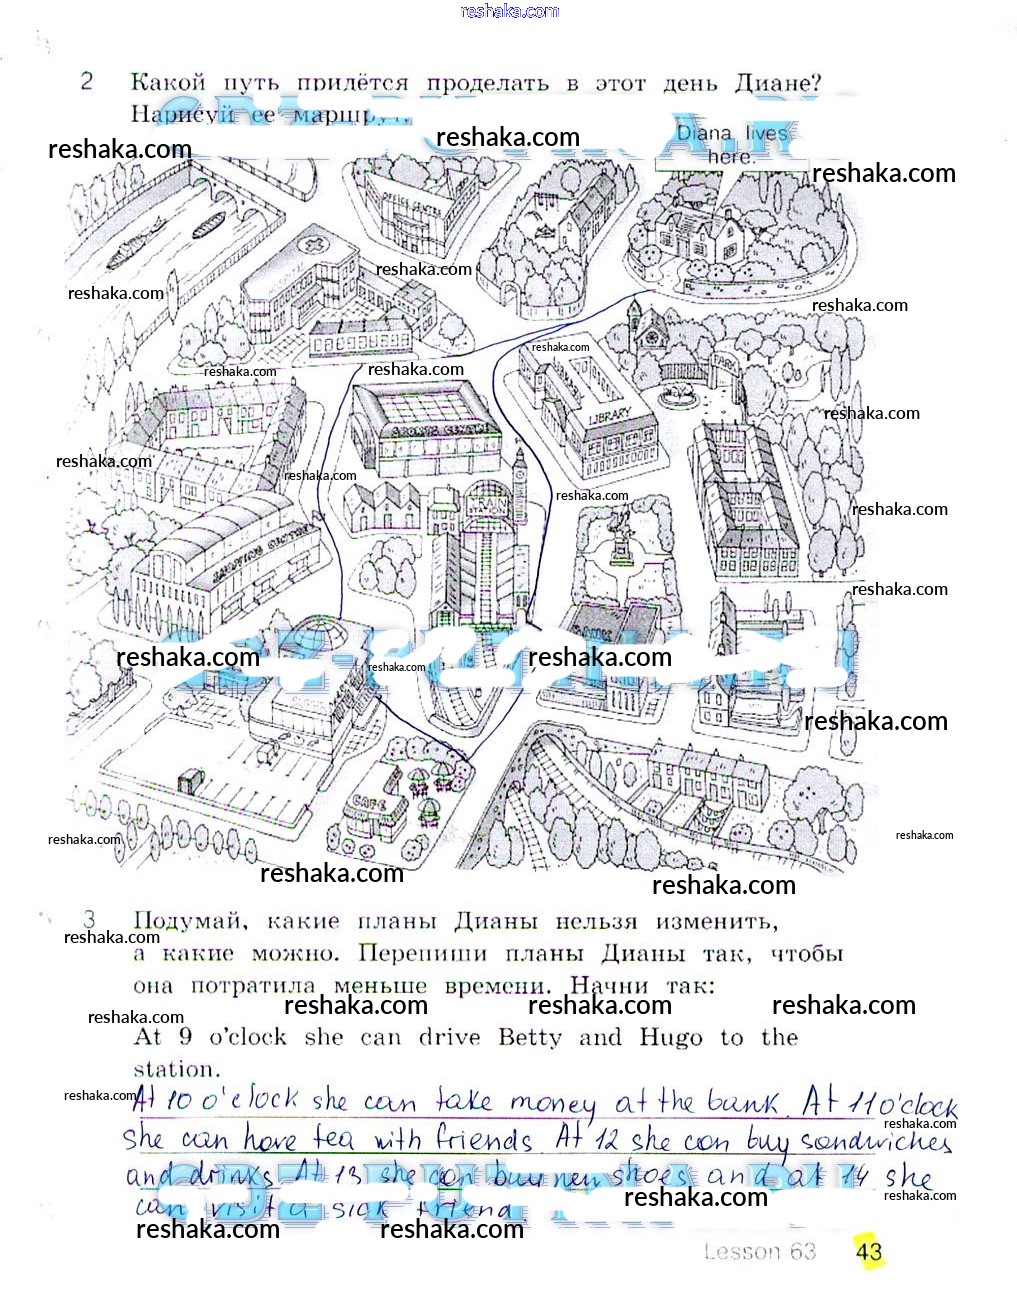 reshaka.com
2 Какой путь придётся проделать в этот день Диане?
Нарисуй её маршрут.
reshaka.com
reshaka.com
Diana lives
here.
reshaka.com
OFFICE CENTRE
reshaka.com
reshaka.com
reshaka.com
reshaka.com
reshaka.com
reshaka.com
PARK
LIBRARY
LIBRARY
reshaka.com
SPORTS CENTRE
reshaka.com
reshaka.com
TRAIN
reshaka.com
reshaka.com
SHOPPING CENTRE
reshaka.com
BANK
reshaka.com
reshaka.com
reshaka.com
reshaka.com
CAFE
reshaka.com
reshaka.com
reshaka.com
reshaka.com
3 Подумай, какие планы Дианы нельзя изменить,
reshaka.com
а какие можно. Перепиши планы Дианы так, чтобы
она потратила меньше времени. Начни так:
reshaka.com
reshaka.com
reshaka.com
reshaka.com
At 9 o'clock she can drive Betty and Hugo to the
station.
reshaka.com
At 10 o'clock she can take money at the bank. At 11 o'clock
reshaka.com
she can have tea with friends. At 12 she can buy sandwiches
and drinks. At 13 she can buy new shoes and at 14 she
reshaka.com
reshaka.com
can visit a sick friend.
reshaka.com
reshaka.com
Lesson 63 43